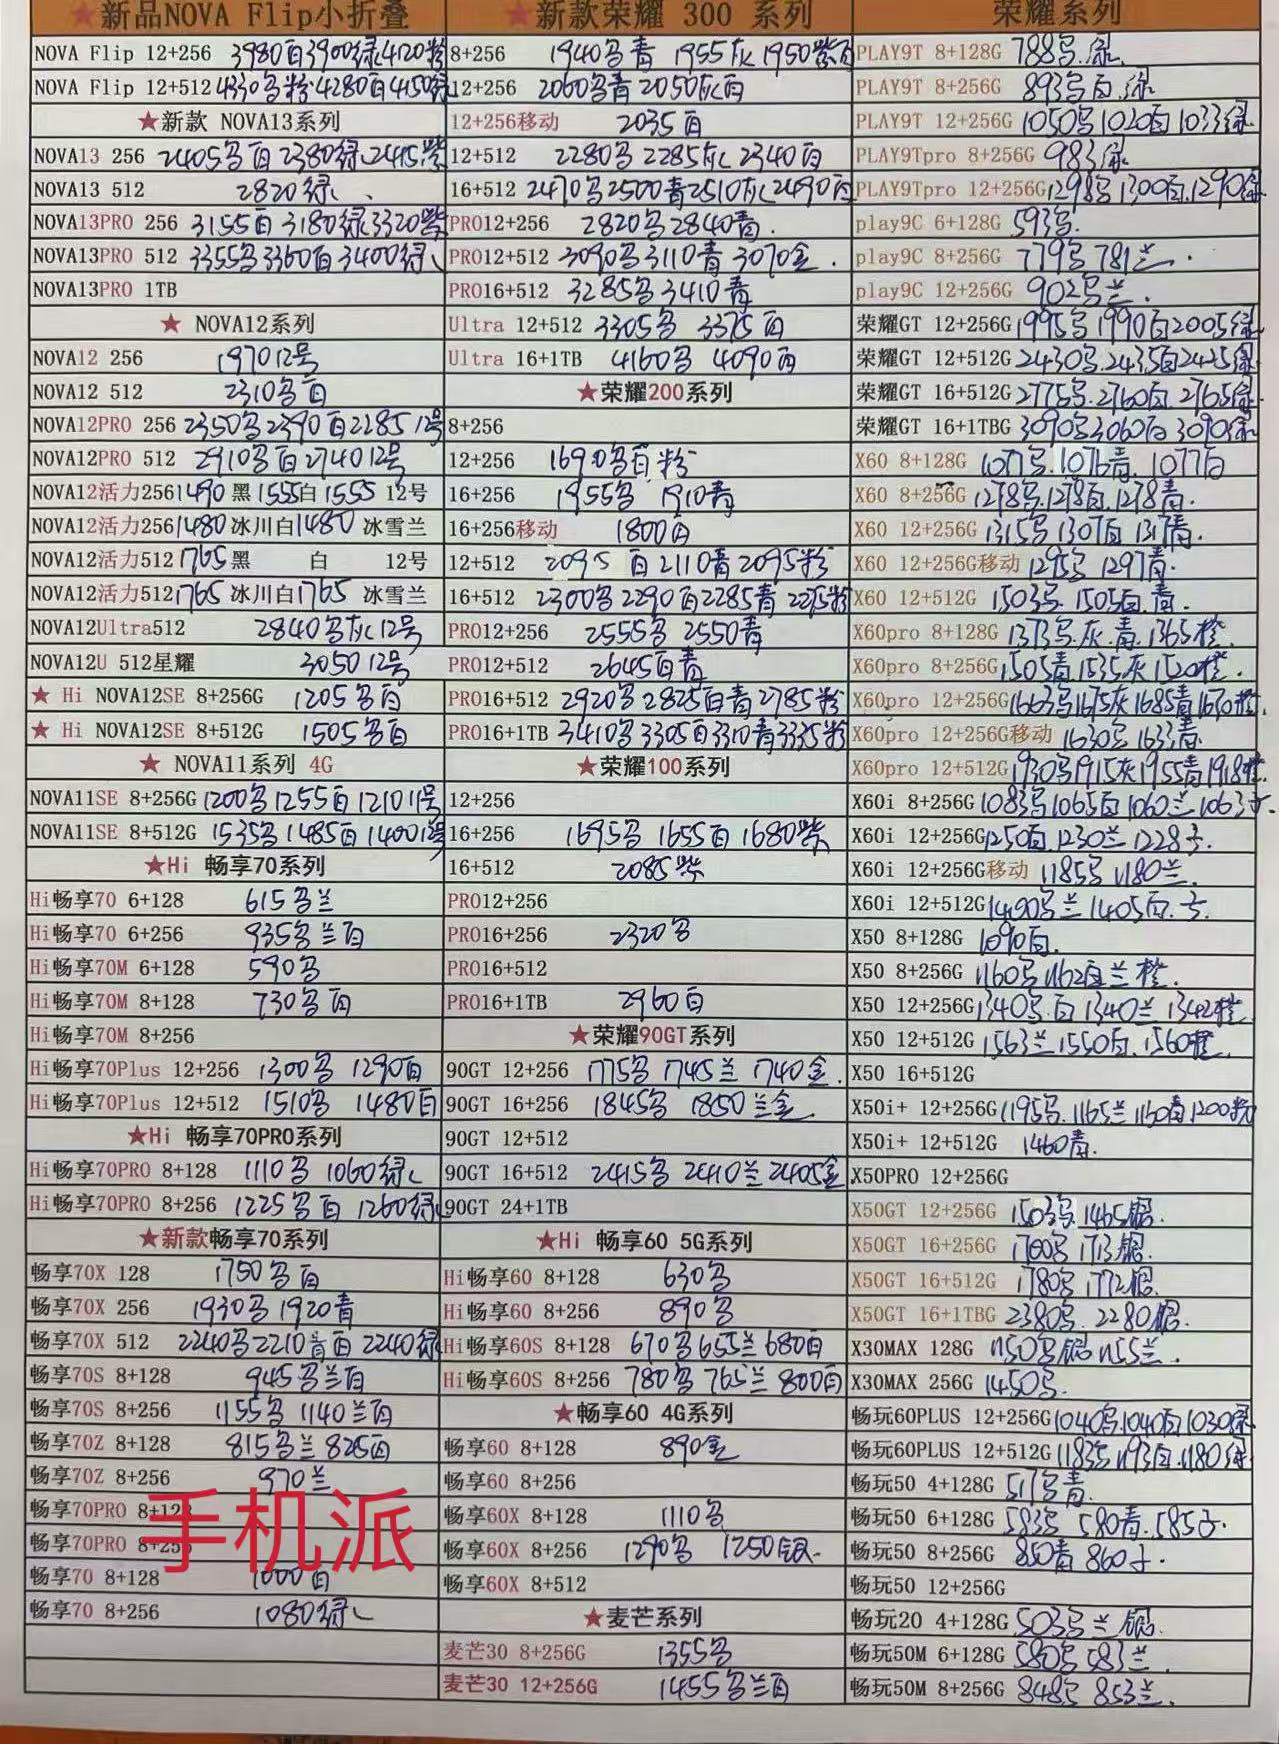 ★新品NOVA Flip小折叠
NOVA Flip 12+256 3980白3900绿4120粉
NOVA Flip 12+512 4330名粉4280白4150绿
★新款 NOVA13系列
NOVA13 256 2405名白2380绿2415紫
NOVA13 512 2820绿
NOVA13PRO 256 3155白3180绿3320紫
NOVA13PRO 512 3355名3360白3400绿
NOVA13PRO 1TB
★ NOVA12系列
NOVA12 256 197012号
NOVA12 512 2310名白
NOVA12PRO 256 2350名2390白228512号
NOVA12PRO 512 2910名白274012号
NOVA12活力256 1490黑1555白1555 12号
NOVA12活力256 1480冰川白1480 冰雪兰
NOVA12活力512 1765黑 白 12号
NOVA12活力512 1765冰川白1765 冰雪兰
NOVA12Ultra512 2840名灰12号
NOVA12U 512星耀 305012号
★ Hi NOVA12SE 8+256G 1205名白
★ Hi NOVA12SE 8+512G 1505名白
★ NOVA11系列 4G
NOVA11SE 8+256G 1200名1255白121011号
NOVA11SE 8+512G 1535名1485白1400
★Hi 畅享70系列
Hi畅享70 6+128 615名兰
Hi畅享70 6+256 935名兰白
Hi畅享70M 6+128 590名
Hi畅享70M 8+128 730名白
Hi畅享70M 8+256
Hi畅享70Plus 12+256 1300名 1290白
Hi畅享70Plus 12+512 1510名 1480白
★Hi 畅享70PRO系列
Hi畅享70PRO 8+128 1110名 1060绿
Hi畅享70PRO 8+256 1225名白 1260绿
★新款畅享70系列
畅享70X 128 1750名白
畅享70X 256 1930名1920青
畅享70X 512 2240名2210青白2240绿
畅享70S 8+128 945名兰白
畅享70S 8+256 1155名1140兰白
畅享70Z 8+128 815名兰825白
畅享70Z 8+256 970兰
畅享70PRO 8+128
畅享70PRO 8+256
手机派
畅享70 8+128 1000白
畅享70 8+256 1080绿
★新款荣耀 300 系列
8+256 1940名青 1955灰1950紫白
12+256 2060名青2050灰白
12+256移动 2035白
12+512 2280名2285灰2340白
16+512 2470名2500青2510灰2490白
PRO12+256 2820名2840青.
PRO12+512 3090名3110青3070金.
PRO16+512 3285名3410青
Ultra 12+512 3305名 3375白
Ultra 16+1TB 4160名 4090白
★荣耀200系列
8+256
12+256 1690名白粉
16+256 1955名 1910青
16+256移动 1800白
12+512 2095白2110青2095粉
16+512 2300名2290白2285青2275粉
PRO12+256 2555名2550青
PRO12+512 2645白青
PRO16+512 2920名2825白青2785粉
PRO16+1TB 3410名3305白3310青3335粉
★荣耀100系列
12+256
16+256 1695名1655白1680紫
16+512 2085紫
PRO12+256
PRO16+256 2320名
PRO16+512
PRO16+1TB 2960白
★荣耀90GT系列
90GT 12+256 1775名1745兰1740金.
90GT 16+256 1845名 1850兰金
90GT 12+512
90GT 16+512 2415名2410兰2405金
90GT 24+1TB
★Hi 畅享60 5G系列
Hi畅享60 8+128 630名
Hi畅享60 8+256 890名
Hi畅享60S 8+128 670名655兰680白
Hi畅享60S 8+256 780名765兰800白
★畅享60 4G系列
畅享60 8+128 890金
畅享60 8+256
畅享60X 8+128 1110名
畅享60X 8+256 1290名 1250银
畅享60X 8+512
★麦芒系列
麦芒30 8+256G 1355名
麦芒30 12+256G 1455名兰白
荣耀系列
PLAY9T 8+128G 788名.绿
PLAY9T 8+256G 893名白.绿
PLAY9T 12+256G 1050名1020白1033绿
PLAY9Tpro 8+256G 983绿
PLAY9Tpro 12+256G 1298名1300白1290绿
play9C 6+128G 593名.
play9C 8+256G 779名781兰.
play9C 12+256G 902名兰.
荣耀GT 12+256G 1995名1990白2005绿
荣耀GT 12+512G 2430名.2435白2425绿
荣耀GT 16+512G 2775名.2760白.2765绿
荣耀GT 16+1TBG 3090名3060白3090绿
X60 8+128G 1077名.1076青.1077白
X60 8+256G 1278名1278白1278青.
X60 12+256G 1315名1307白1317青.
X60 12+256G移动 1295名1297青.
X60 12+512G 1503名.1505白.青.
X60pro 8+128G 1373名.灰.青.1365橙.
X60pro 8+256G 1505青1535灰1520橙.
X60pro 12+256G 1663名1675灰1685青1670橙
X60pro 12+256G移动 1630名1633青.
X60pro 12+512G 1930名1915灰1955青1918橙.
X60i 8+256G 1083名1065白1060兰1063
X60i 12+256G 1250白1230兰1228
X60i 12+256G移动 1185名1180兰.
X60i 12+512G 1490名兰1405白.
X50 8+128G 1090白.
X50 8+256G 1160名1162白兰橙.
X50 12+256G 1340名.白1340兰1342橙.
X50 12+512G 1563兰1550白.1560橙.
X50 16+512G
X50i+ 12+256G 1195名.1165兰1160青1200粉
X50i+ 12+512G 1460青.
X50PRO 12+256G
X50GT 12+256G 1503名.1465银.
X50GT 16+256G 1760名1713银.
X50GT 16+512G 1780名1772银.
X50GT 16+1TBG 2380名.2280银.
X30MAX 128G 1150名银1155兰.
X30MAX 256G 1450名.
畅玩60PLUS 12+256G 1040名.1040白1030绿
畅玩60PLUS 12+512G 1183名1193白.1180绿
畅玩50 4+128G 517名青.
畅玩50 6+128G 583名 580青.585
畅玩50 8+256G 850青860
畅玩50 12+256G
畅玩20 4+128G 503名兰银.
畅玩50M 6+128G 580名583兰.
畅玩50M 8+256G 848名853兰.